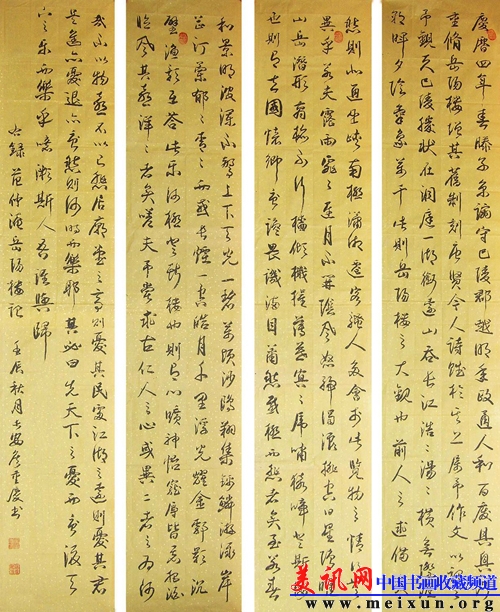 慶曆四年春滕子京謫守巴陵郡越明年政通人和百廢具興乃
重修岳陽樓增其舊制刻唐賢今人詩賦於其上屬予作文以記之
予觀夫巴陵勝狀在洞庭一湖銜遠山吞長江浩浩湯湯橫無際涯
朝暉夕陰氣象萬千此則岳陽樓之大觀也前人之述備矣
然則北通巫峽南極瀟湘遷客騷人多會於此覽物之情得無
異乎若夫霪雨霏霏連月不開陰風怒號濁浪排空日星隱耀
山岳潛形商旅不行檣傾楫摧薄暮冥冥虎嘯猿啼登斯樓
也則有去國懷鄉憂讒畏譏滿目蕭然感極而悲者矣至若春
和景明波瀾不驚上下天光一碧萬頃沙鷗翔集錦鱗游泳岸
芷汀蘭郁郁青青而或長煙一空皓月千里浮光耀金靜影沉
璧漁歌互答此樂何極登斯樓也則有心曠神怡寵辱皆忘把酒
臨風其喜洋洋者矣嗟夫予嘗求古仁人之心或異二者之為何
哉不以物喜不以己悲居廟堂之高則憂其民處江湖之遠則憂其君
是進亦憂退亦憂然則何時而樂耶其必曰先天下之憂而憂後天
下之樂而樂乎噫微斯人吾誰與歸
右錄范仲淹岳陽樓記 壬辰秋月
美讯网 中国书画收藏频道
www.meixun.org